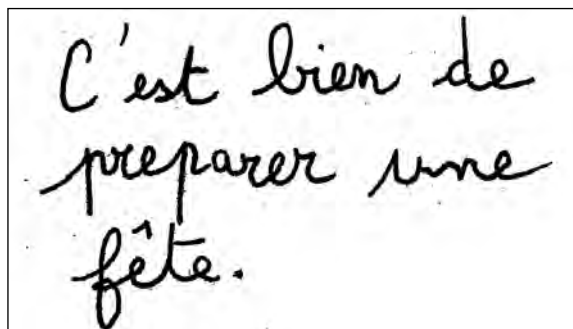 C'est bien de
preparer une
fête.